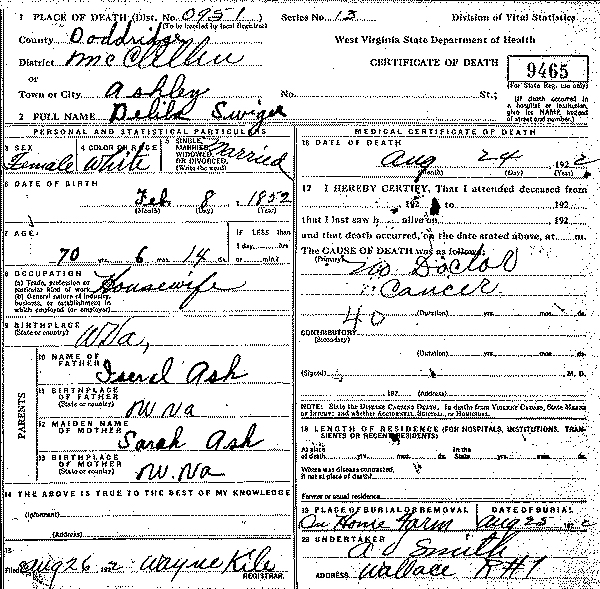 1 PLACE OF DEATH (Dist. No. 0951 Series No. 13 Division of Vital Statistics
(To be inserted by local Registrar)
County Doddridge West Virginia State Department of Health
District McClellin CERTIFICATE OF DEATH 9465
or (For State Reg. use only)
Town or City Ashley No. St.;
(If death occurred in a hospital or institution, give its NAME instead of street and number.)
2 FULL NAME Delila Swiger
PERSONAL AND STATISTICAL PARTICULARS
3 SEX 4 COLOR OR RACE 5 SINGLE, MARRIED, WIDOWED OR DIVORCED. (Write the word)
Female White Married
6 DATE OF BIRTH
Feb 8, 1852
(Month) (Day) (Year)
7 AGE: IF LESS than
1 day, hrs
70 yrs. 6 mos. 14 ds. or min.?
8 OCCUPATION
(a) Trade, profession or particular kind of work Housewife
(b) General nature of industry, business, or establishment in which employed (or employer)
9 BIRTHPLACE
(State or country) WVa,
PARENTS
10 NAME OF FATHER Iserel Ash
11 BIRTHPLACE OF FATHER
(State or country) W Va
12 MAIDEN NAME OF MOTHER Sarah Ash
13 BIRTHPLACE OF MOTHER
(State or country) W. Va
14 THE ABOVE IS TRUE TO THE BEST OF MY KNOWLEDGE
(Informant)
(Address)
15
Filed Aug 26 192 2 Wayne Kile
REGISTRAR.
MEDICAL CERTIFICATE OF DEATH
16 DATE OF DEATH
Aug 24 192 2
(Month) (Day) (Year)
17 I HEREBY CERTIFY, That I attended deceased from
192 to 192
that I last saw h alive on 192
and that death occurred, on the date stated above, at m.
The CAUSE OF DEATH was as follows:
(Primary) No Doctor
Cancer
40 (Duration) yrs. mos. ds.
CONTRIBUTORY
(Secondary)
(Duration) yrs. mos. ds.
(Signed) M. D.
192 (Address)
NOTE: State the DISEASE CAUSING DEATH. In deaths from VIOLENT CAUSES, STATE MEANS OF INJURY; and whether ACCIDENTAL, SUICIDAL, or HOMICIDAL.
18 LENGTH OF RESIDENCE (FOR HOSPITALS, INSTITUTIONS, TRANSIENTS OR RECENT RESIDENTS):
At place of death yrs. mos. ds. In the State yrs. mos. ds.
Where was disease contracted, if not at place of death?
Former or usual residence
19 PLACE OF BURIAL OR REMOVAL DATE OF BURIAL
On Home Farm Aug 25 192 2
20 UNDERTAKER
Smith
ADDRESS Wallace R#1